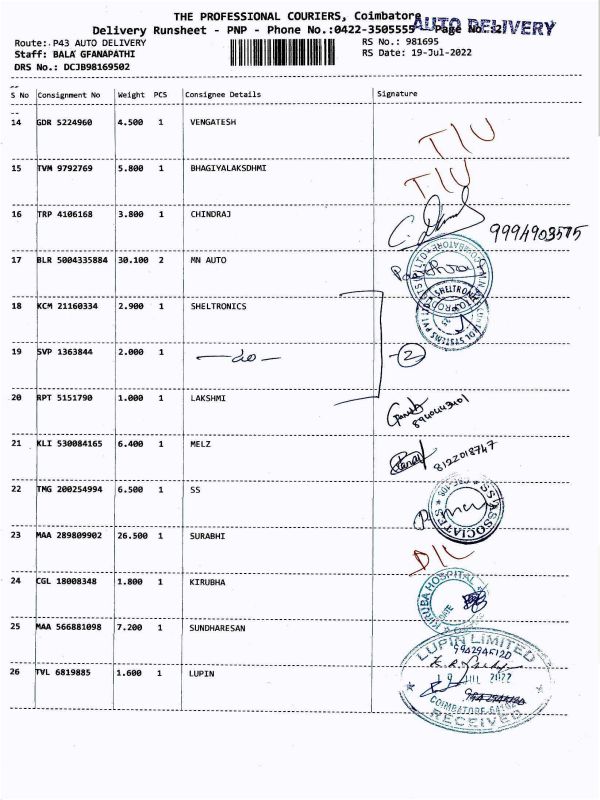 THE PROFESSIONAL COURIERS, Coimbatore
AUTO DELIVERY
Delivery Runsheet - PNP - Phone No.:0422-3505555 Page No.:2/
Route: P43 AUTO DELIVERY RS No.: 981695
Staff: BALA GFANAPATHI RS Date: 19-Jul-2022
DRS No.: DCJB98169502
S No Consignment No Weight PCS Consignee Details Signature
14 GDR 5224960 4.500 1 VENGATESH T/U
15 TVM 9792769 5.800 1 BHAGIYALAKSDHMI T/U
16 TRP 4106168 3.800 1 CHINDRAJ 9994903575
17 BLR 5004335884 30.100 2 MN AUTO
18 KCM 21160334 2.900 1 SHELTRONICS
19 SVP 1363844 2.000 1 -do- 2
20 RPT 5151790 1.000 1 LAKSHMI
21 KLI 530084165 6.400 1 MELZ 8122018747
22 TMG 200254994 6.500 1 SS SS ASSOCIATES
23 MAA 289809902 26.500 1 SURABHI D/L
24 CGL 18008348 1.800 1 KIRUBHA KIRUBA HOSPITAL
DATE
25 MAA 566881098 7.200 1 SUNDHARESAN
LUPIN LIMITED
26 TVL 6819885 1.600 1 LUPIN
19 JUL 2022
RECEIVED